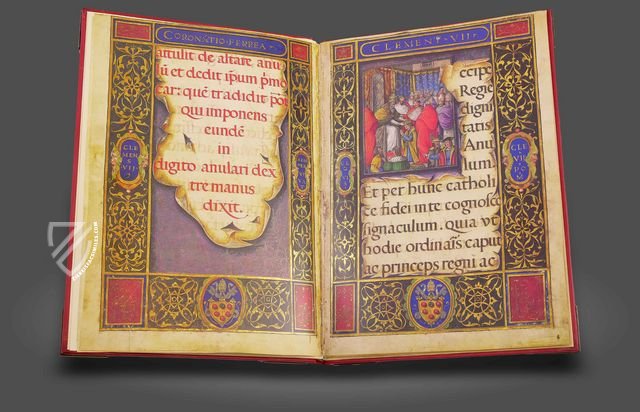 CORONATIO·FERREA
attulit de altare anu
lu et dedit ipum pmo
car: quẽ tradidit pōt
qui imponens
eundẽ
in
digito anulari dex
tre manus
dixit.
CLE
MEN
S
VII
CLEMENT·VII·
ccipe
Regie
digni
tatis
Anu
lum
Et per hunc catholi
ce fidei in te cognosce
signaculum. quia vt
hodie ordinaris caput
ac princeps regni ac
CLE
VII
PO
M